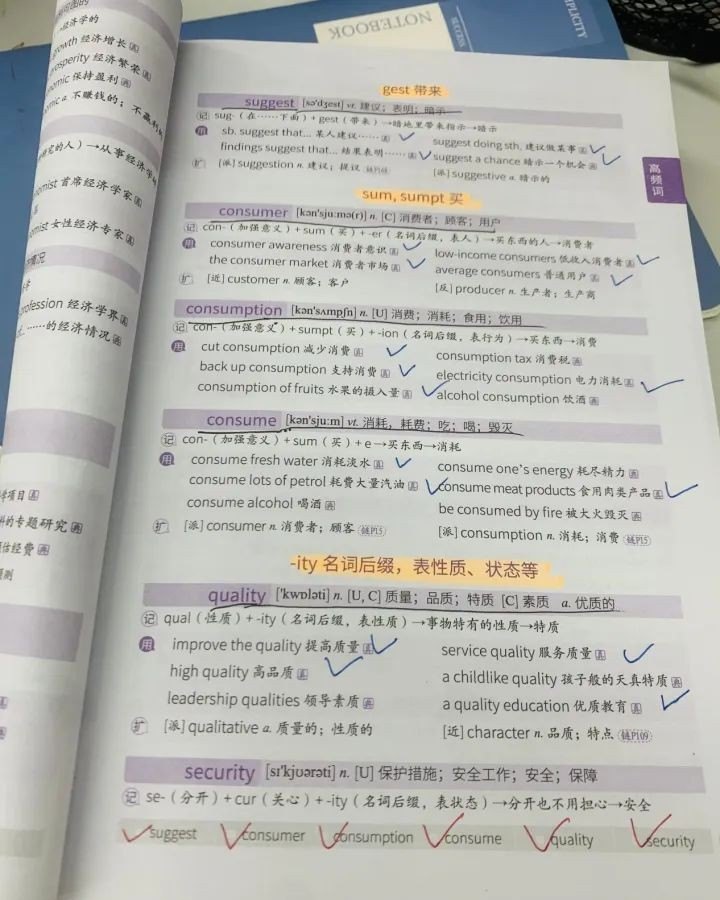 NOTEBOOK
SUCCESS
→经济学的
growth 经济增长
prosperity 经济繁荣
保持盈利
a. 不赚钱的；不赢利
研究的人）→从事经济学
首席经济学家
女性经济专家
profession 经济学界
……的经济情况
的专题研究
gest 带来
suggest [sə'dʒest] vt. 建议；表明；暗示
记 sug-（在……下面）+ gest（带来）→暗地里带来指示→暗示
用 sb. suggest that... 某人建议…… suggest doing sth. 建议做某事
findings suggest that... 结果表明…… suggest a chance 暗示一个机会
扩 [派] suggestion n. 建议；提议 [派] suggestive a. 暗示的
高频词
sum, sumpt 买
consumer [kən'sjuːmə(r)] n. [C] 消费者；顾客；用户
记 con-（加强意义）+ sum（买）+ -er（名词后缀，表人）→买东西的人→消费者
用 consumer awareness 消费者意识 low-income consumers 低收入消费者
the consumer market 消费者市场 average consumers 普通用户
扩 [近] customer n. 顾客；客户 [反] producer n. 生产者；生产商
consumption [kən'sʌmpʃn] n. [U] 消费；消耗；食用；饮用
记 con-（加强意义）+ sumpt（买）+ -ion（名词后缀，表行为）→买东西→消费
用 cut consumption 减少消费 consumption tax 消费税
back up consumption 支持消费 electricity consumption 电力消耗
consumption of fruits 水果的摄入量 alcohol consumption 饮酒
consume [kən'sjuːm] vt. 消耗，耗费；吃；喝；毁灭
记 con-（加强意义）+ sum（买）+ e→买东西→消耗
用 consume fresh water 消耗淡水 consume one's energy 耗尽精力
consume lots of petrol 耗费大量汽油 consume meat products 食用肉类产品
consume alcohol 喝酒 be consumed by fire 被大火毁灭
扩 [派] consumer n. 消费者；顾客 链P15 [派] consumption n. 消耗；消费 链P15
-ity 名词后缀，表性质、状态等
quality ['kwɒləti] n. [U, C] 质量；品质；特质 [C] 素质 a. 优质的
记 qual（性质）+ -ity（名词后缀，表性质）→事物特有的性质→特质
用 improve the quality 提高质量 service quality 服务质量
high quality 高品质 a childlike quality 孩子般的天真特质
leadership qualities 领导素质 a quality education 优质教育
扩 [派] qualitative a. 质量的；性质的 [近] character n. 品质；特点 链P109
security [sɪ'kjʊərəti] n. [U] 保护措施；安全工作；安全；保障
记 se-（分开）+ cur（关心）+ -ity（名词后缀，表状态）→分开也不用担心→安全
suggest consumer consumption consume quality security